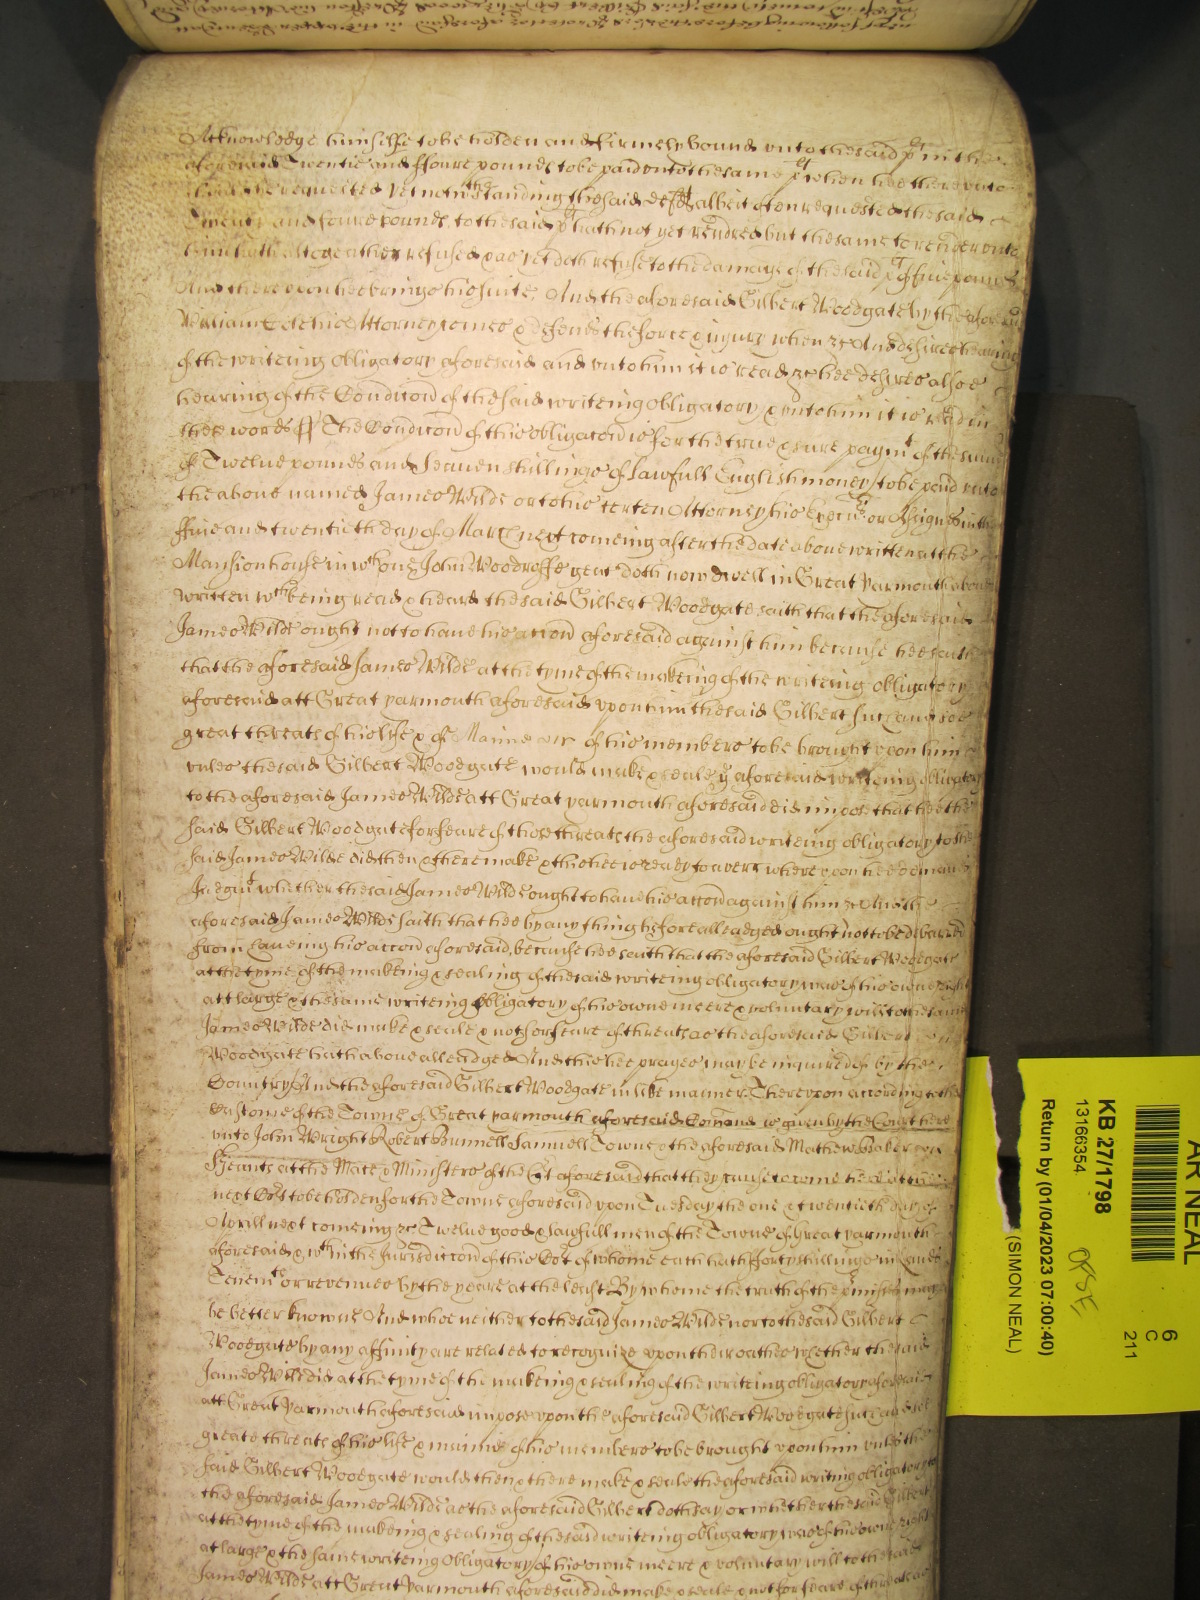 Acknowledge himselfe to be holden and firmely bound unto the said pl in the
aforesaid Twentie and ffoure pounds to be paid unto the same pl when hee thereunto
requested yet notwthstanding the said deft albeit often requested the said
Twenty and foure pounds to the said pl hath not yet rendred but the same to render unto
him hath altogeather refused & as yet doth refuse to the damage of the said pl of five pounds
And thereupon hee brings his suite. And the aforesaid Gilbert Woodgate by the aforesaid
William Attorney comes & defends the force & injury when &c And desires hearing
of the writeing obligatory aforesaid and unto him it is read &c hee desires alsoe
hearing of the Condicon of the said writeing obligatory & unto him it is read in
these words ss The Condicon of this obligacon is for the true & sure paymt of the summe
of Twelve pounds and Seaven shillings of lawfull English money to be paid unto
the above named James Wilde or to his certen Attorney his Execut or Assignes in the
ffive and twentieth day of March next comeing after the date above written att the
Mansion house in wch one John Woodroffe gent doth now dwell in Great Yarmouth above
written wch being read & heard the said Gilbert Woodgate saith that the aforesaid
James Wilde ought not to have his accon aforesaid against him because hee saith
that the aforesaid James Wilde at the tyme of the makeing of the writeing obligatory
aforesaid att Great Yarmouth aforesaid upon him the said Gilbert such and soe
great threats of his life & of of his members to be brought upon him
unles the said Gilbert Woodgate would make & seale ye aforesaid writeing obligatory
to the aforesaid James Wilde att Great Yarmouth aforesaid did impose that hee the
said Gilbert Woodgate for feare of those threats the aforesaid writeing obligatory to the
said James Wilde did then & there make & this hee is ready to averr whereupon hee demands
Judgmt whether the said James Wilde ought to have his accon against him &c And the
aforesaid James Wilde saith that hee by any thing before alleadged ought not to be debarred
from haveing his accon aforesaid, because hee saith that the aforesaid Gilbert Woodgate
at the tyme of the makeing & sealing of the said writeing obligatory was of his owne right
att large & the same writeing Obligatory of his owne meere & voluntary will to the said
James Wilde did make & seale & not for feare of threats as the aforesaid Gilbert
Woodgate hath above alleadged And this hee prayes may be inquired of by the
Country And the aforesaid Gilbert Woodgate in like manner. Thereupon according to the
custome of the Towne of Great Yarmouth aforesaid Comand is given by the Court here
unto John Wright Robert Bunnell Samuell Towne & the aforesaid Mathew Baker
Sjeants at the Mace & Ministers of the Crt aforesaid that they cause to come here att the
next Cort to be holden for the Towne aforesaid upon Tuesday the one & twentieth day of
Aprill next comeing &c Twelve good & lawfull men of the Towne of Great Yarmouth
aforesaid & wthin the Jurisdiccon of this Cort of whome each hath forty shillings in lands
Tenemts or revenues by the yeare at the least By whome the truth of the pmisses may
be better knowne And whoe neither to the said James Wilde nor to the said Gilbert
Woodgate by any affinity are related to recognize upon their oathes whether the said
James Wilde did at the tyme of the makeing & sealing of the writeing obligatory aforesaid
att Great Yarmouth aforesaid impose upon the aforesaid Gilbert Woodgate such and soe
greate threats of his life & maime of his members to be brought upon him unles the
said Gilbert Woodgate would then & there make & seale the aforesaid writing obligatory to
the aforesaid James Wilde as the aforesaid Gilbert doth say or whether the said Gilbert
at the tyme of the makeing & sealing of the said writeing obligatory was of his owne right
at large & the same writeing Obligatory of his owne meere & voluntary will to the said
James Wilde att Great Yarmouth aforesaid did make & seale & not for feare of threats as
AR NEAL
6
C
211
KB 27/1798
13166354
Return by (01/04/2023 07:00:40)
(SIMON NEAL)